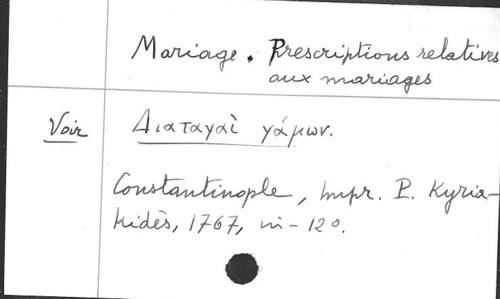 Mariage. Prescriptions relatives
aux mariages
Voir Διαταγαὶ γάμων.
Constantinople, Impr. P. Kyria-
kidès, 1767, in-12°.